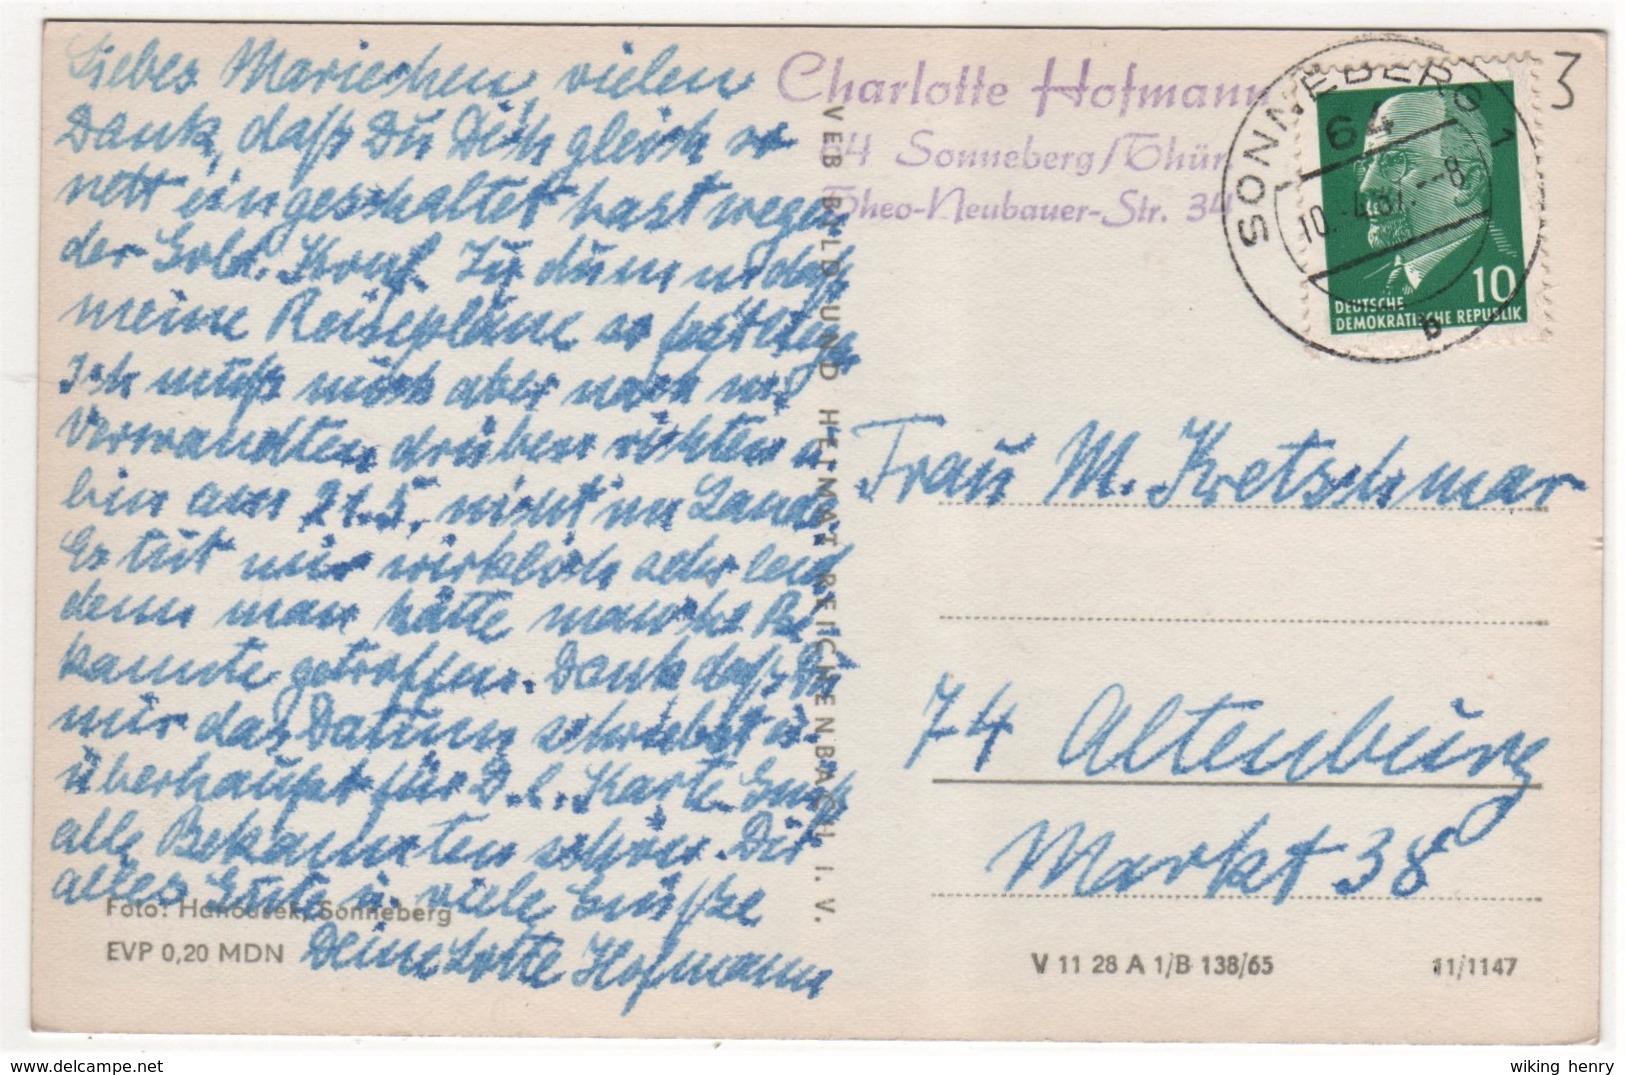 Liebes Mariechen vielen
Dank, daß Du Dich gleich so
nett eingeschaltet hast wegen
der Gold. Konf. Zu dumm daß
meine Reisepläne so festliegen
Ich muß mich aber nach m.
Verwandten drüben richten u.
bin am 21.5. nicht im Lande.
Es tut mir wirklich sehr leid
denn man hätte manche Be-
kannte getroffen. Dank daß Du
mir das Datum schriebst u.
überhaupt für D. l. Karte. Grüß
alle Bekannten schön. Dir
alles Gute u. viele Grüße
Deine Lotte Hofmann
Foto: Hanousek, Sonneberg
EVP 0,20 MDN
VEB BILD UND HEIMAT REICHENBACH I. V.
Charlotte Hofmann
64 Sonneberg/Thür
Theo-Neubauer-Str. 34
SONNEBERG 1
64
10. 67. -8
b
10
DEUTSCHE
DEMOKRATISCHE REPUBLIK
3
Frau M. Kretschmar
74 Altenburg
Markt 38
V 11 28 A 1/B 138/65
11/1147
wiking henry